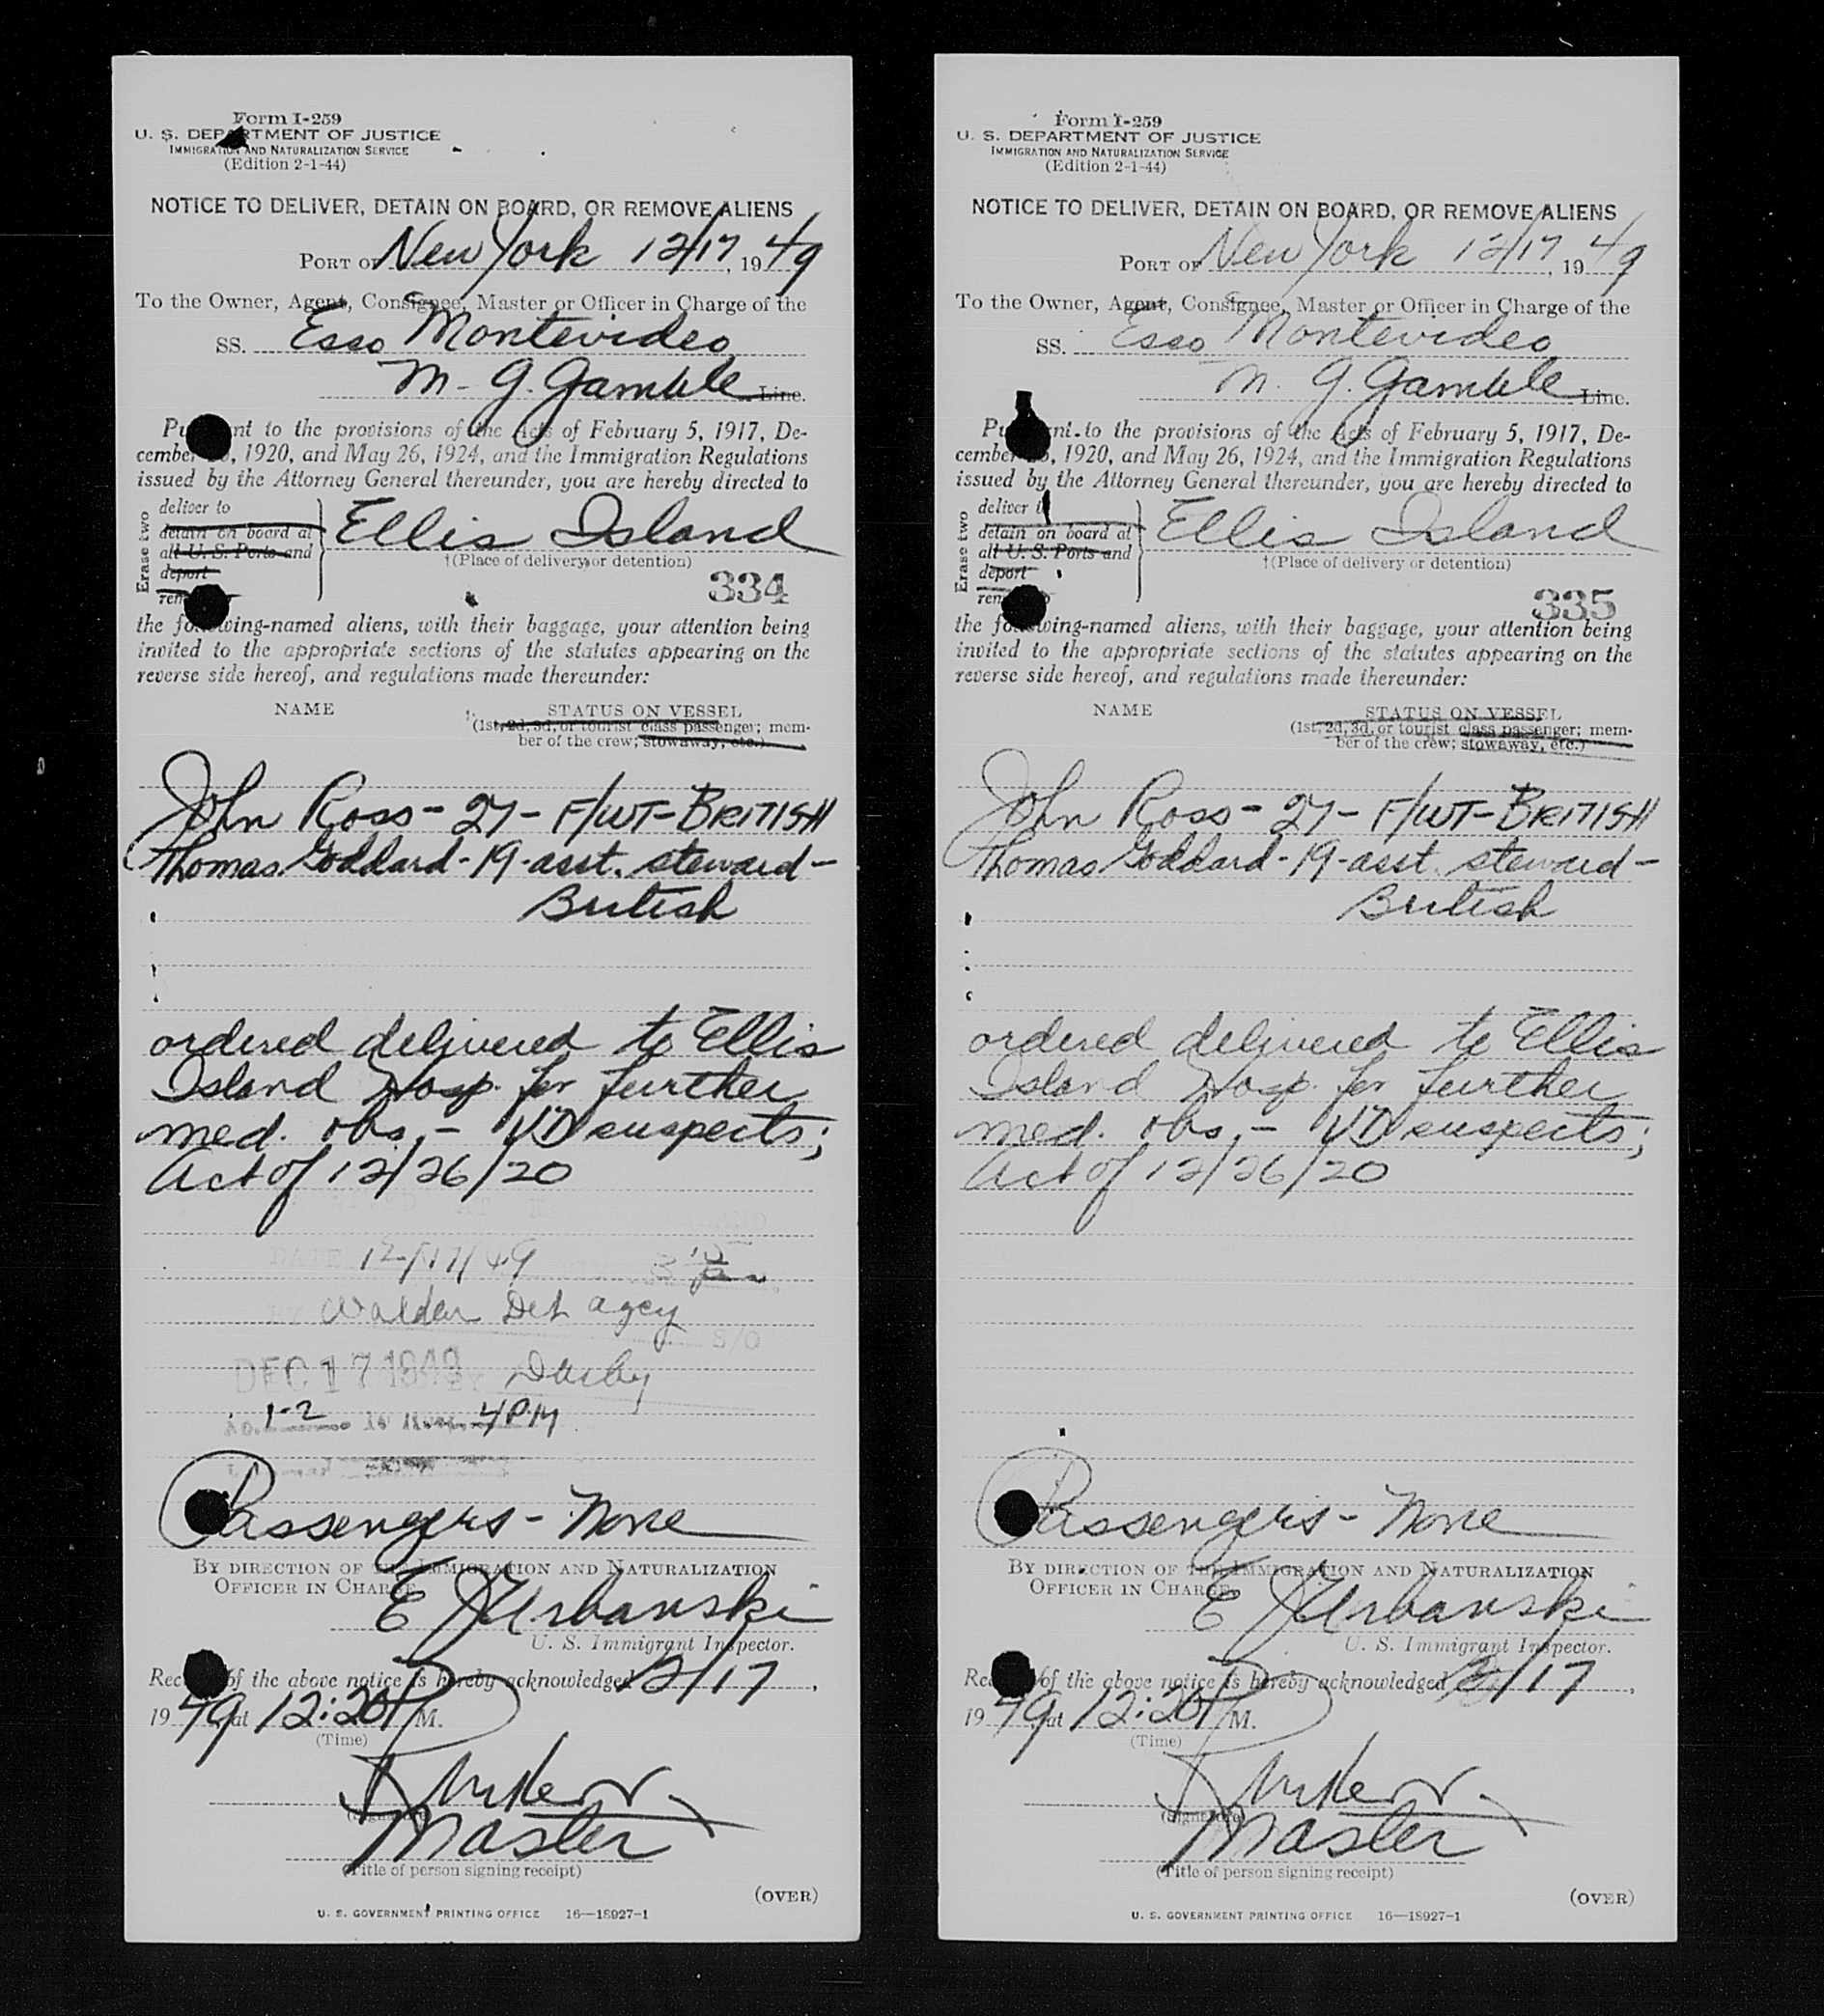 Form I-259
U. S. DEPARTMENT OF JUSTICE
IMMIGRATION AND NATURALIZATION SERVICE
(Edition 2-1-44)
NOTICE TO DELIVER, DETAIN ON BOARD, OR REMOVE ALIENS
PORT OF New York 12/17, 1949
To the Owner, Agent, Consignee, Master or Officer in Charge of the
SS. Esso Montevideo
M. G. Gamble Line.
Pu nt to the provisions of the Acts of February 5, 1917, De-
cember , 1920, and May 26, 1924, and the Immigration Regulations
issued by the Attorney General thereunder, you are hereby directed to
Erase two
deliver to
detain on board at
all U. S. Ports and
deport
Ellis Island
†(Place of delivery or detention)
334
the following-named aliens, with their baggage, your attention being
invited to the appropriate sections of the statutes appearing on the
reverse side hereof, and regulations made thereunder:
NAME STATUS ON VESSEL
(1st, 2d, 3d, or tourist class passenger; mem-
ber of the crew; stowaway, etc.)
John Ross - 27 - F/WT - BRITISH
Thomas Goddard - 19 - asst. steward -
British
ordered delivered to Ellis
Island Hosp. for further
med. obs. - VD suspects;
Act of 12/26/20
DATE 12/17/49
BY Walder Det agcy
S/O
DEC 17 1949
1-2 4 PM
Passengers - None
BY DIRECTION OF THE IMMIGRATION AND NATURALIZATION
OFFICER IN CHARGE.
E J Urbanski
U. S. Immigrant Inspector.
Rec of the above notice is hereby acknowledged 12/17,
1949, at 12:20 P M.
(Time)
(Signature)
Master
(Title of person signing receipt)
(OVER)
U. S. GOVERNMENT PRINTING OFFICE 16—18927-1
Form I-259
U. S. DEPARTMENT OF JUSTICE
IMMIGRATION AND NATURALIZATION SERVICE
(Edition 2-1-44)
NOTICE TO DELIVER, DETAIN ON BOARD, OR REMOVE ALIENS
PORT OF New York 12/17, 1949
To the Owner, Agent, Consignee, Master or Officer in Charge of the
SS. Esso Montevideo
M. G. Gamble Line.
Pu nt to the provisions of the Acts of February 5, 1917, De-
cember , 1920, and May 26, 1924, and the Immigration Regulations
issued by the Attorney General thereunder, you are hereby directed to
Erase two
deliver to
detain on board at
all U. S. Ports and
deport
Ellis Island
†(Place of delivery or detention)
335
the following-named aliens, with their baggage, your attention being
invited to the appropriate sections of the statutes appearing on the
reverse side hereof, and regulations made thereunder:
NAME STATUS ON VESSEL
(1st, 2d, 3d, or tourist class passenger; mem-
ber of the crew; stowaway, etc.)
John Ross - 27 - F/WT - BRITISH
Thomas Goddard - 19 - asst. steward -
British
ordered delivered to Ellis
Island Hosp. for further
med. obs. - VD suspects;
Act of 12/26/20
Passengers - None
BY DIRECTION OF THE IMMIGRATION AND NATURALIZATION
OFFICER IN CHARGE.
E J Urbanski
U. S. Immigrant Inspector.
Rec of the above notice is hereby acknowledged 12/17,
1949, at 12:20 P M.
(Time)
(Signature)
Master
(Title of person signing receipt)
(OVER)
U. S. GOVERNMENT PRINTING OFFICE 16—18927-1